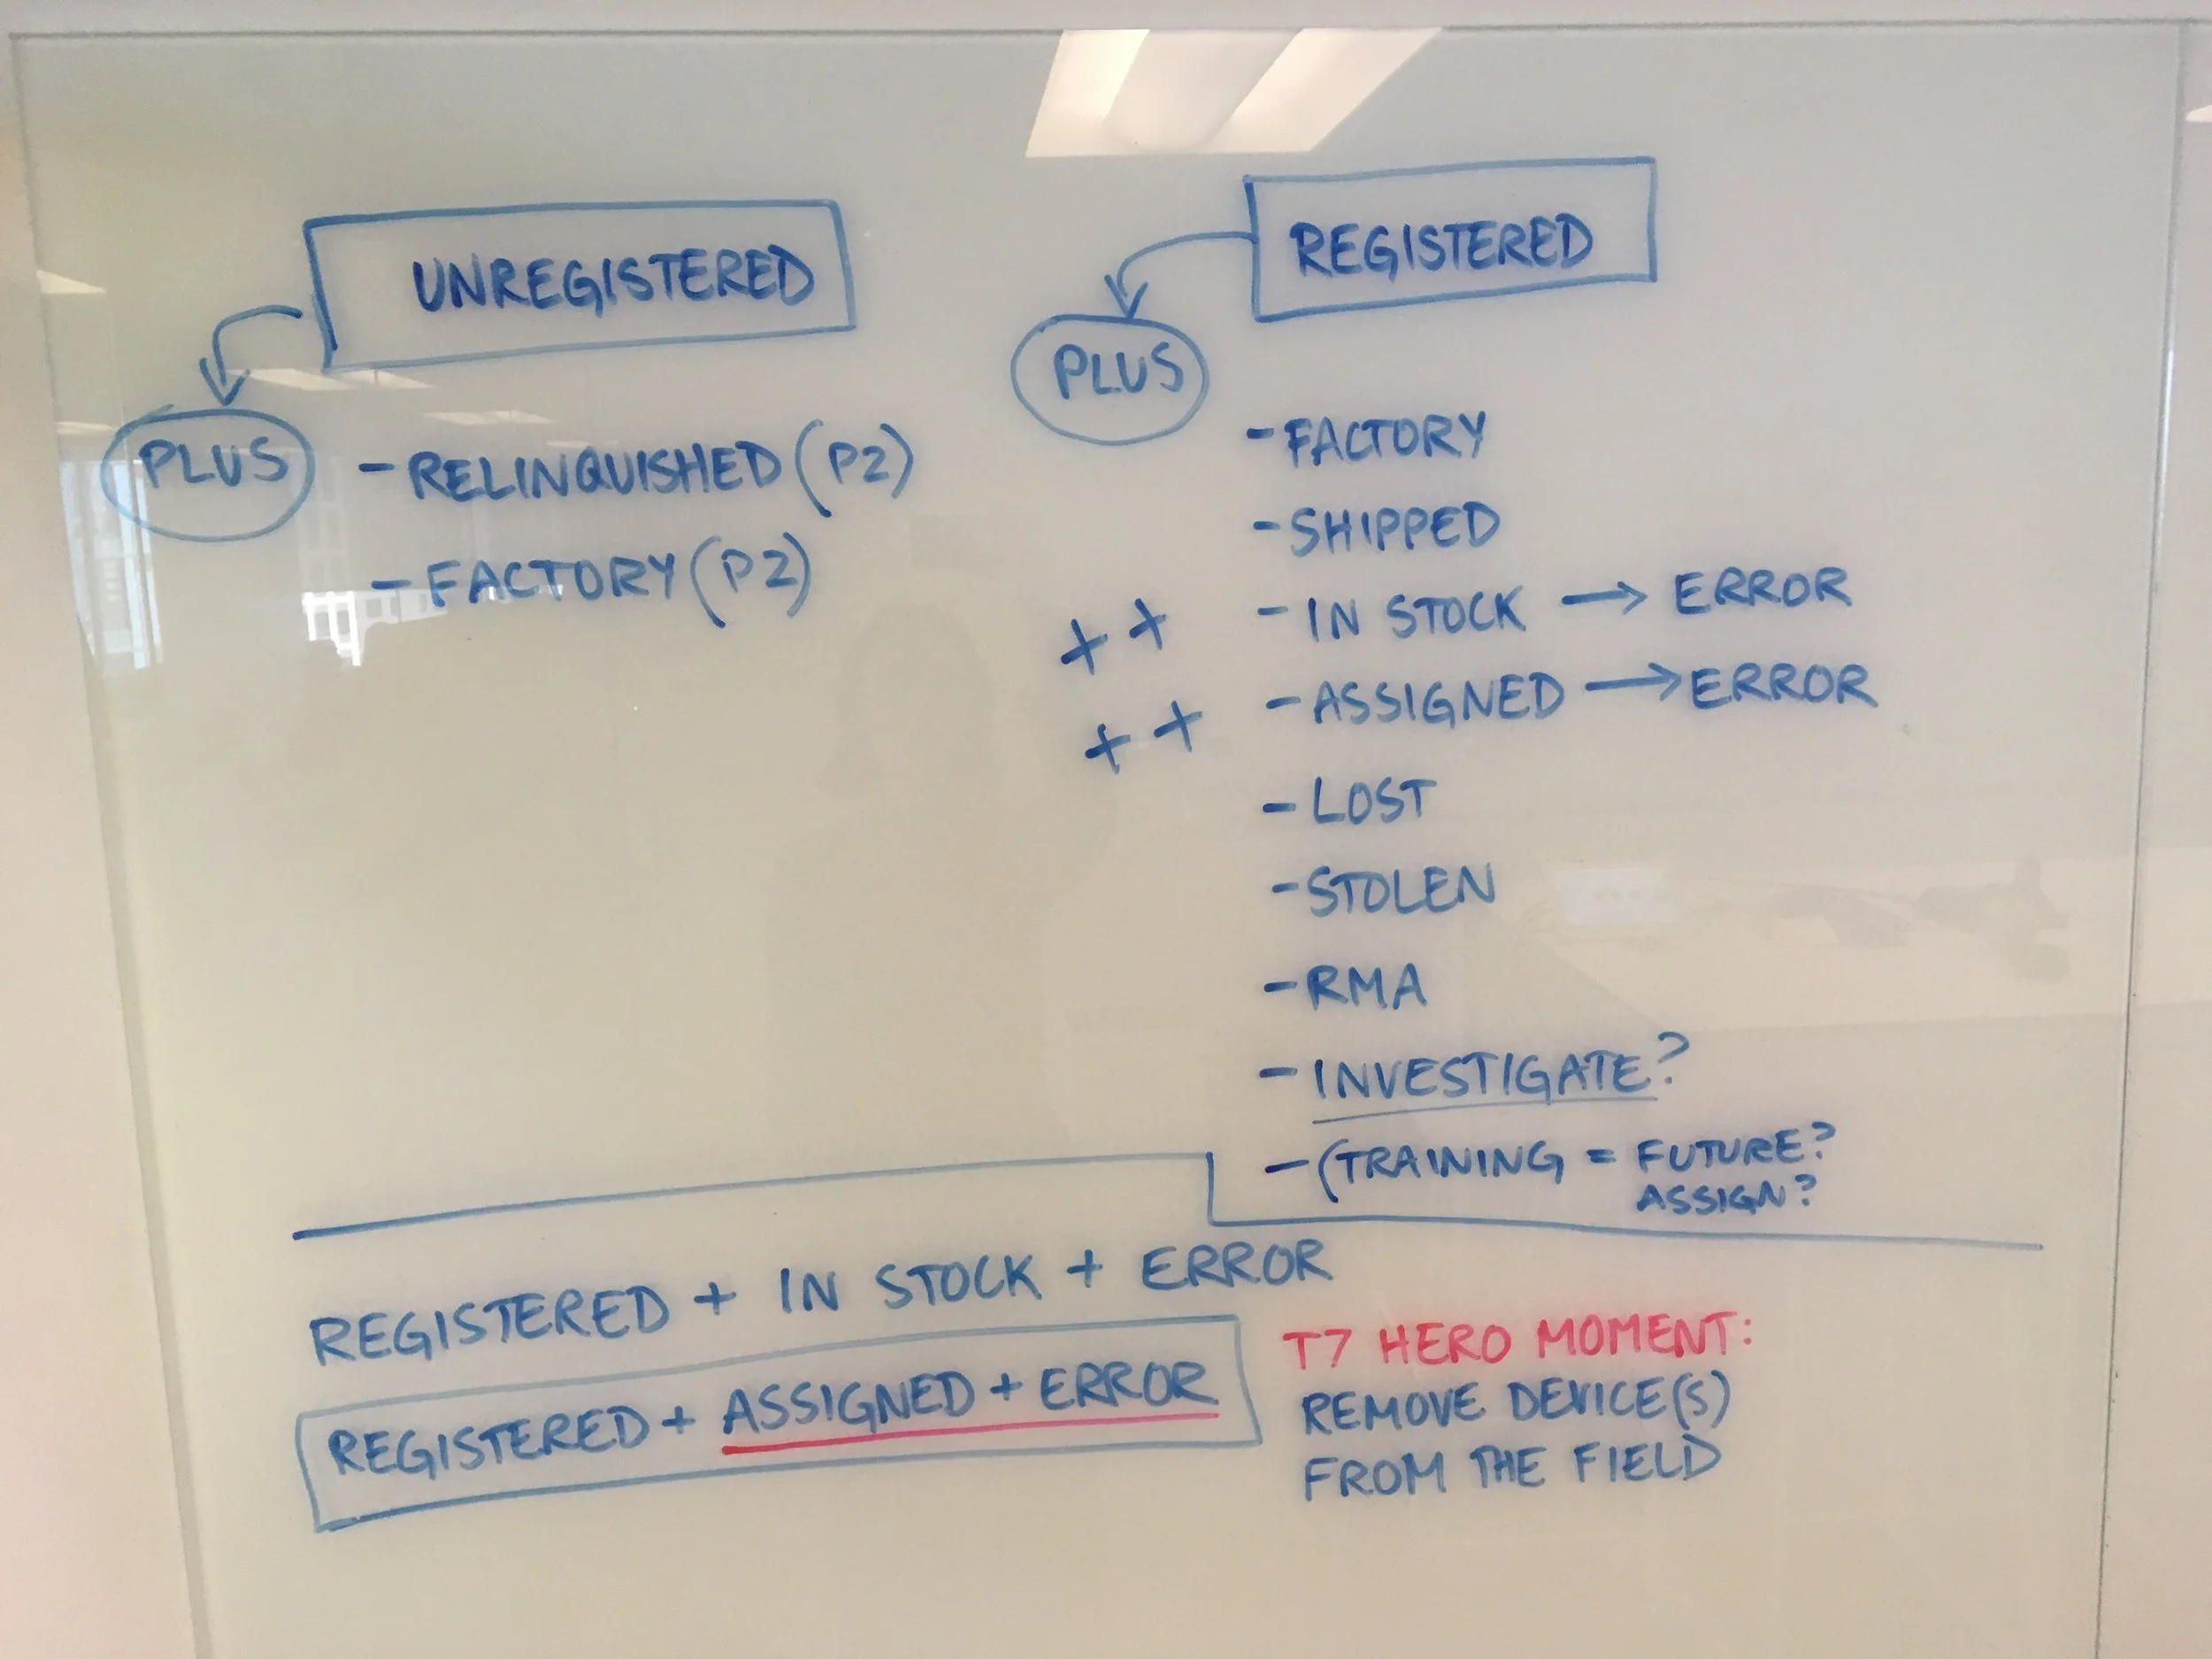 UNREGISTERED
PLUS
- RELINQUISHED (P2)
- FACTORY (P2)
REGISTERED
PLUS
- FACTORY
- SHIPPED
+ + - IN STOCK → ERROR
+ + - ASSIGNED → ERROR
- LOST
- STOLEN
- RMA
- INVESTIGATE?
- (TRAINING = FUTURE?
ASSIGN?
REGISTERED + IN STOCK + ERROR
REGISTERED + ASSIGNED + ERROR
T7 HERO MOMENT:
REMOVE DEVICE(S)
FROM THE FIELD